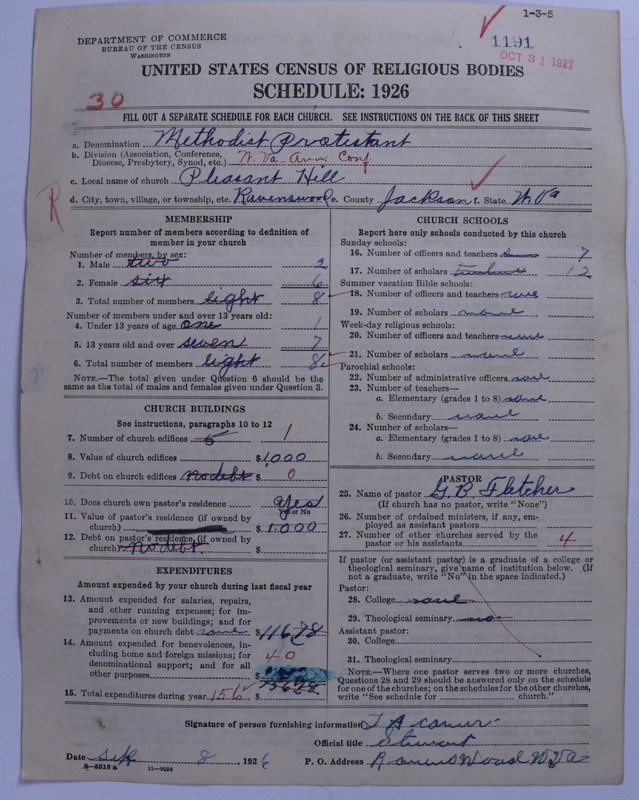 1-3-5
DEPARTMENT OF COMMERCE
BUREAU OF THE CENSUS
WASHINGTON
1191
OCT 31 1927
UNITED STATES CENSUS OF RELIGIOUS BODIES
SCHEDULE: 1926
30
FILL OUT A SEPARATE SCHEDULE FOR EACH CHURCH. SEE INSTRUCTIONS ON THE BACK OF THIS SHEET
a. Denomination Methodist Protestant
b. Division (Association, Conference, Diocese, Presbytery, Synod, etc.) W. Va. Ann. Conf.
c. Local name of church Pleasant Hill
d. City, town, village, or township, etc. Ravenswood e. County Jackson f. State W. Va
R
MEMBERSHIP
Report number of members according to definition of
member in your church
Number of members, by sex:
1. Male two 2
2. Female six 6
3. Total number of members eight 8
Number of members under and over 13 years old:
4. Under 13 years of age one 1
5. 13 years old and over seven 7
6. Total number of members eight 8
NOTE.—The total given under Question 6 should be
the same as the total of males and females given under Question 3.
CHURCH BUILDINGS
See instructions, paragraphs 10 to 12
7. Number of church edifices 1
8. Value of church edifices $1,000
9. Debt on church edifices no debt $ 0
10. Does church own pastor's residence yes
Yes or No
11. Value of pastor's residence (if owned by
church) $1000
12. Debt on pastor's residence (if owned by
church) no debt. $
EXPENDITURES
Amount expended by your church during last fiscal year
13. Amount expended for salaries, repairs,
and other running expenses; for im-
provements or new buildings; and for
payments on church debt $116.78
14. Amount expended for benevolences, in-
cluding home and foreign missions; for
denominational support; and for all
other purposes $ 40
15. Total expenditures during year 156 $
CHURCH SCHOOLS
Report here only schools conducted by this church
Sunday schools:
16. Number of officers and teachers 7
17. Number of scholars 12
Summer vacation Bible schools:
18. Number of officers and teachers
19. Number of scholars
Week-day religious schools:
20. Number of officers and teachers
21. Number of scholars
Parochial schools:
22. Number of administrative officers
23. Number of teachers—
a. Elementary (grades 1 to 8)
b. Secondary
24. Number of scholars—
a. Elementary (grades 1 to 8)
b. Secondary
PASTOR
25. Name of pastor G. B. Fletcher
(If church has no pastor, write "None")
26. Number of ordained ministers, if any, em-
ployed as assistant pastors
27. Number of other churches served by the
pastor or his assistants 4
If pastor (or assistant pastor) is a graduate of a college or
theological seminary, give name of institution below. (If
not a graduate, write "No" in the space indicated.)
Pastor:
28. College
29. Theological seminary no
Assistant pastor:
30. College
31. Theological seminary
NOTE.—Where one pastor serves two or more churches,
Questions 28 and 29 should be answered only on the schedule
for one of the churches; on the schedules for the other churches,
write "See schedule for church."
Signature of person furnishing information
Official title Stewart
Date Sep 8, 1926 P. O. Address Ravenswood W Va
8-5518 a 11-9054